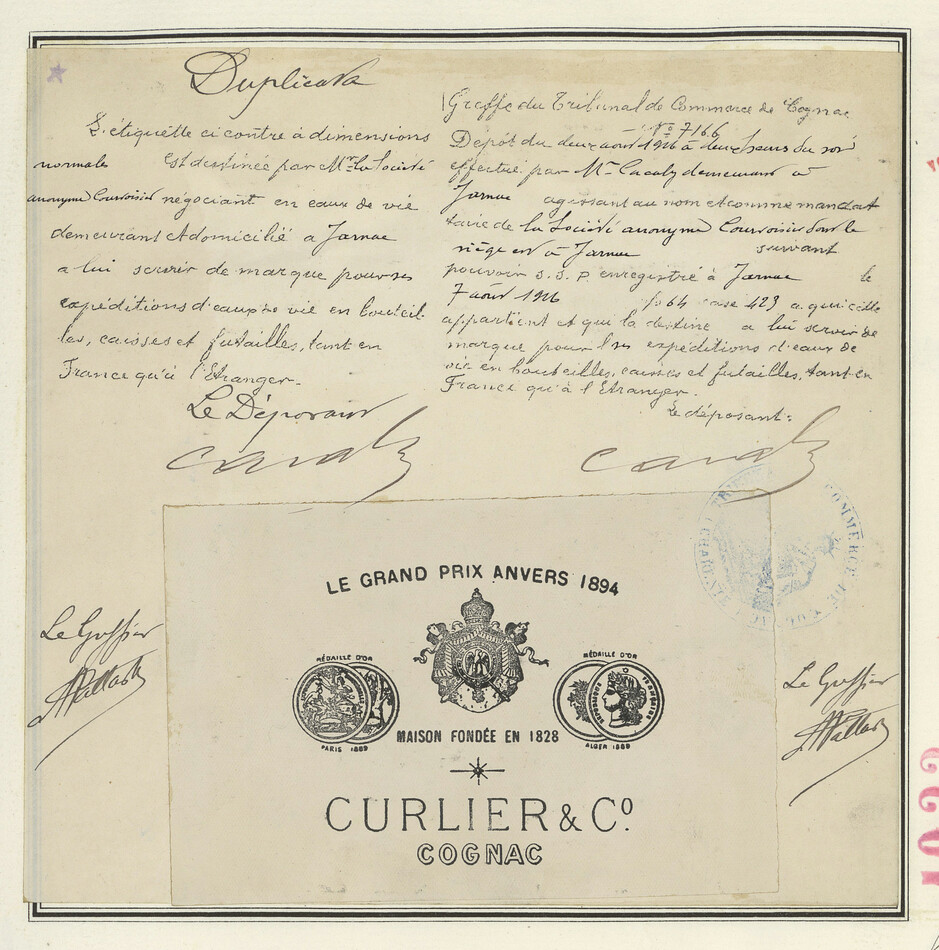 Duplicata
L'étiquette ci contre à dimensions
normales est destinée par Mr la Société
anonyme Courvoisier négociant en eaux de vie
demeurant et domicilié a Jarnac
a lui servir de marque pour ses
expéditions d'eaux de vie en bouteil-
les, caisses et futailles, tant en
France qu'à l'Etranger.
Le Déposant
Greffe du Tribunal de Commerce de Cognac
No 7166
Dépôt du deux aout 1926 à deux heurs du soir
effectué par Mr demeurant à
Jarnac agissant au nom et comme mandat
taire de la Société anonyme Courvoisier dont le
siège est à Jarnac suivant
pouvoir S. S. P. enregistré à Jarnac le
7 aout 1926 fo 64 case 423 a qui elle
appartient et qui la destine a lui servir de
marque pour ses expéditions d'eaux de
vie en bouteilles, caisses et futailles, tant en
France qu'à l'Etranger.
Le déposant:
COMMERCE DE COGNAC
LE GRAND PRIX ANVERS 1894
MÉDAILLE D'OR
PARIS 1889
MÉDAILLE D'OR
RÉPUBLIQUE FRANÇAISE
ALGER 1889
MAISON FONDÉE EN 1828
CURLIER & Co.
COGNAC
Le Greffier
Le Greffier